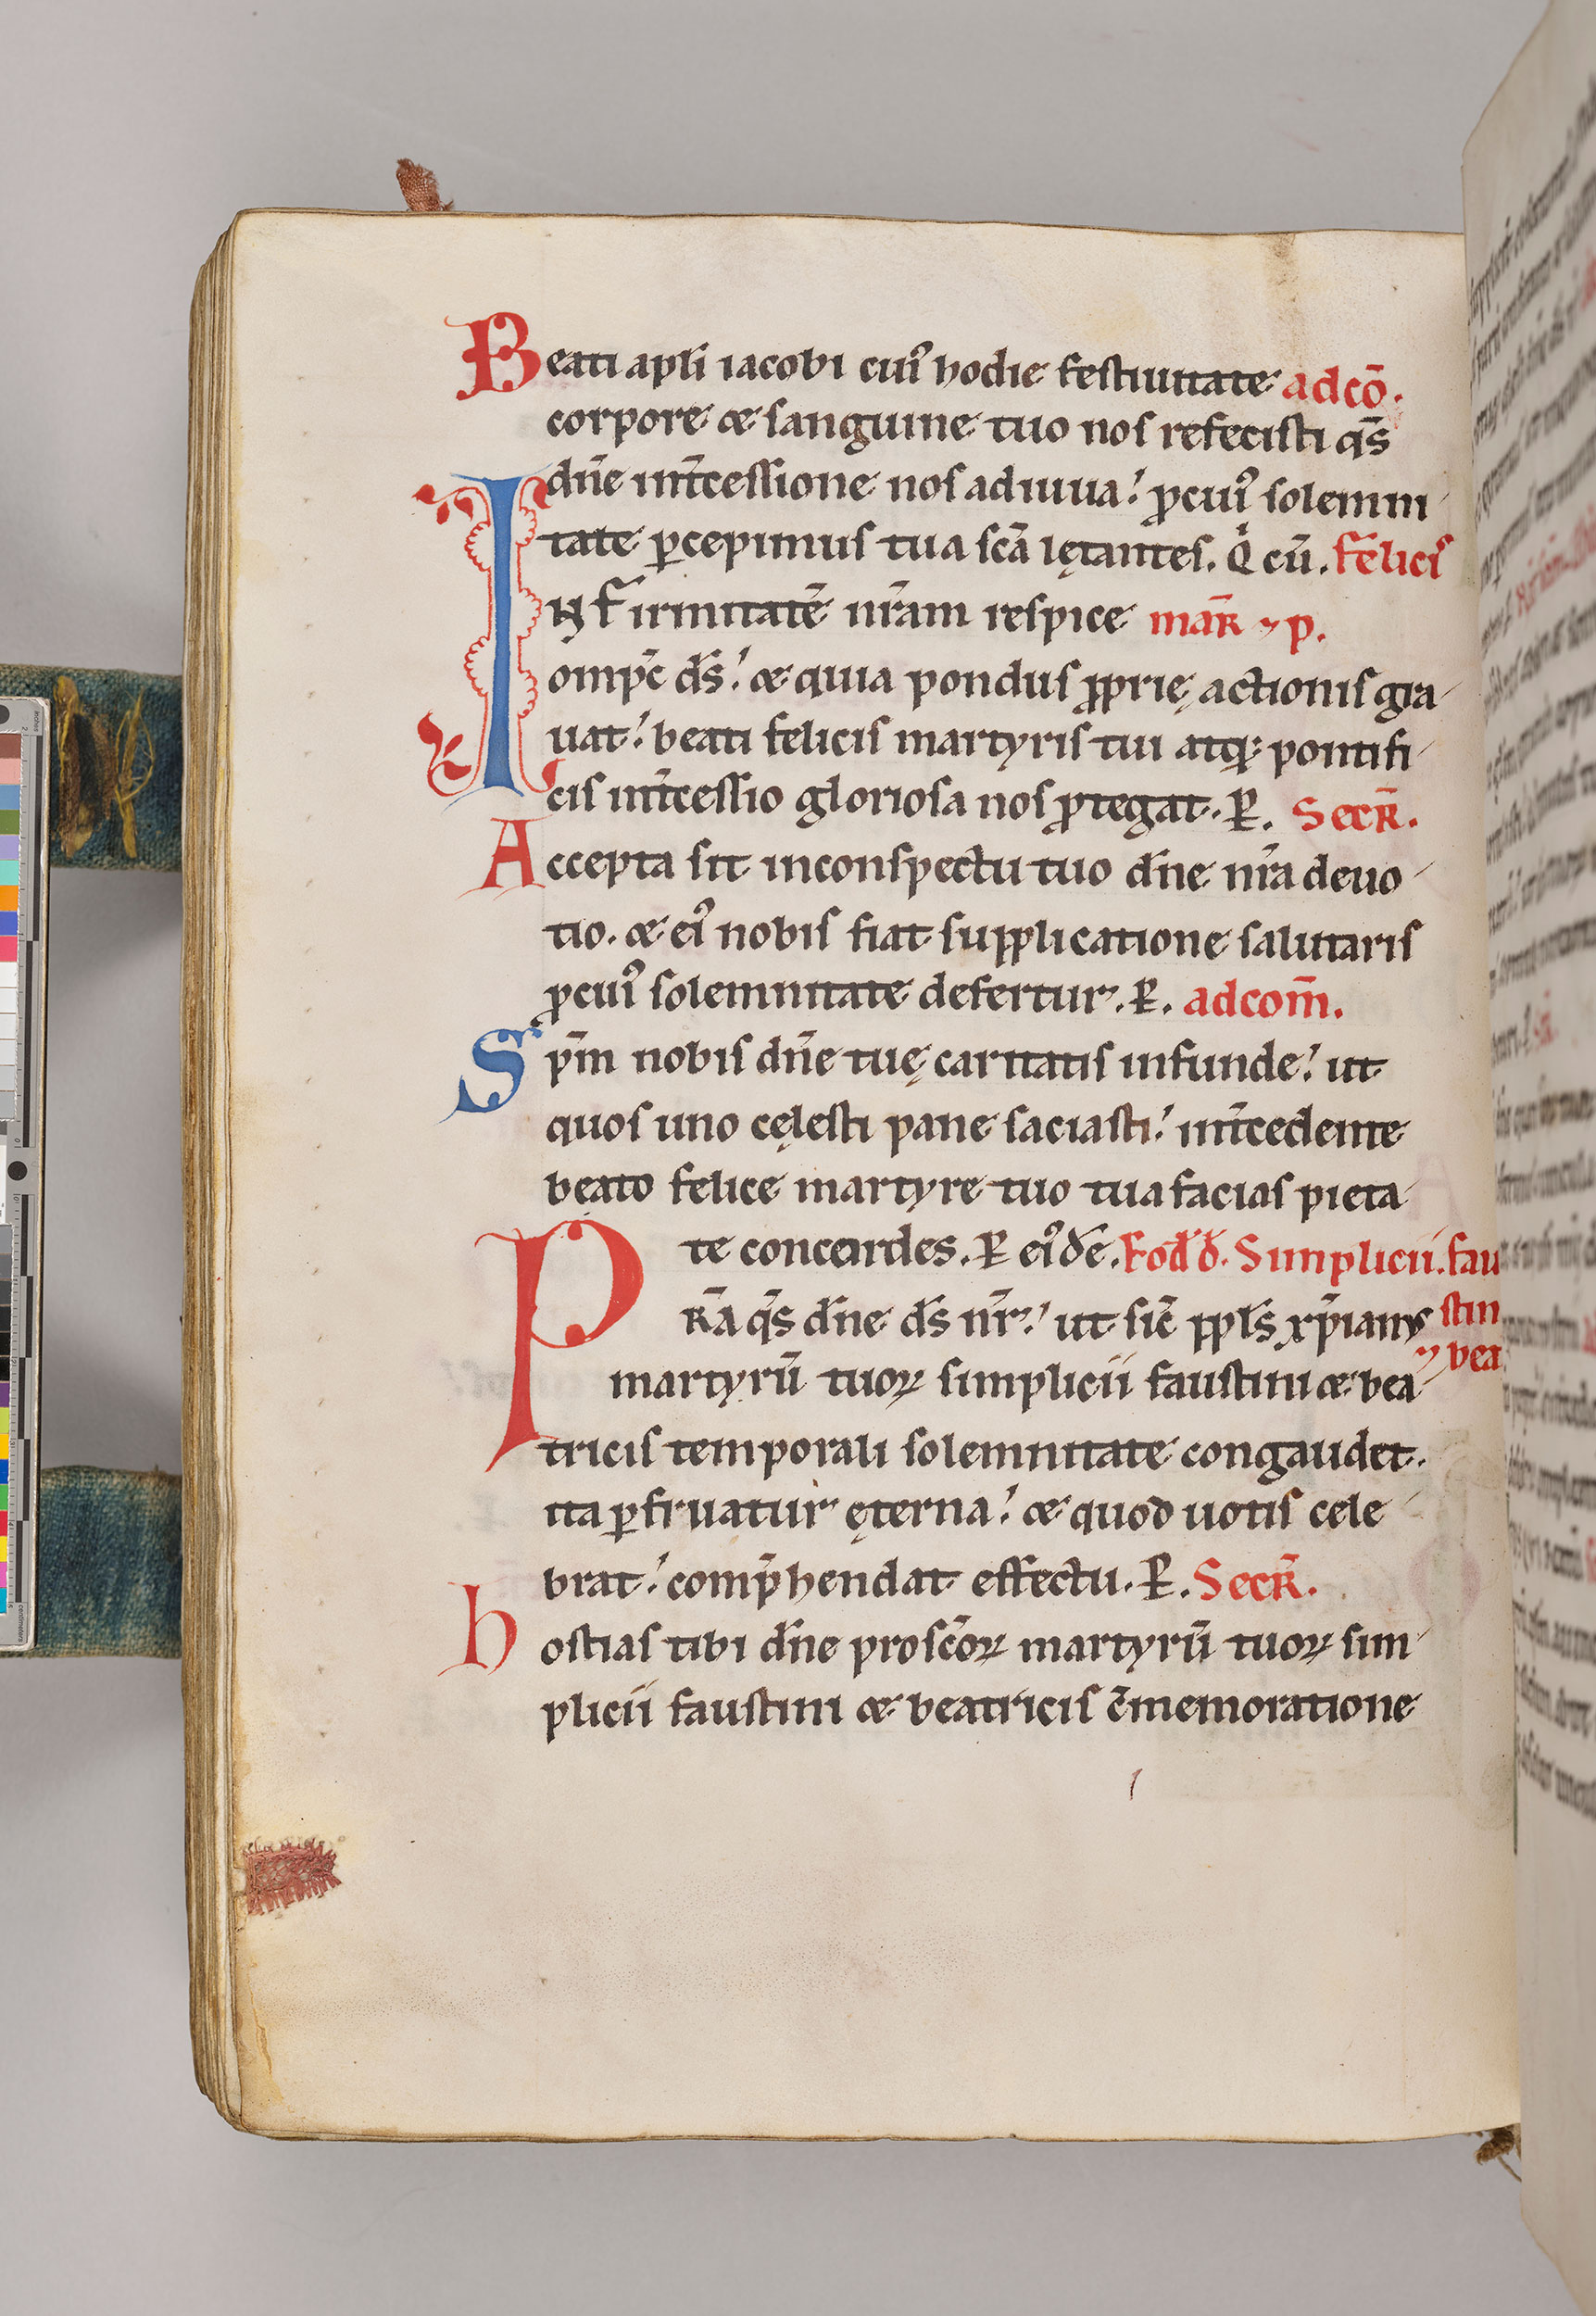 Beati apľi iacobi cuiꝰ hodie festiuitate adcō.
corpore & sanguine tuo nos refecisti qs̄
dn̄e int̄cessione nos adiuua! ꝓcuiꝰ solemni
tate ꝑcepimus tua scā lętantes. Q̇ cū. felicis
INfirmitatē nr̄am respice mar̄ & p.
omp̄c ds̄! & quia pondus ꝓprię actionis gra
uat! beati felicis martyris tui atq; pontifi
cis int̄cessio gloriosa nos ꝓtegat. P̱. Secr̄.
Accepta sit inconspectu tuo dn̄e nr̄a deuo
tio. & eiꝰ nobis fiat supplicatione salutaris
ꝓcuiꝰ solemnitate defertur. P̱. adcom̄.
Sp̄m nobis dn̄e tuę caritatis infunde! ut
quos uno cęlesti pane saciasti! int̄cedente
beato felice martyre tuo tua facias pieta
te concordes. P̱ eiꝰdē. Eod̄ d̄. Simplicii. fau
PR̄A qs̄ dn̄e ds̄ nr̄! ut sic̄ ppl̄s xp̄ianꝰ stin
& bea
martyrū tuoꝝ simplicii faustini & bea
tricis temporali solemnitate congaudet.
ita ꝑfruatur ęterna! & quod uotis cele
brat! comp̄hendat effectu. P̱. Secr̄.
hostias tibi dn̄e pro sc̄oꝝ martyrū tuoꝝ sim
plicii faustini & beatricis c̄memoratione